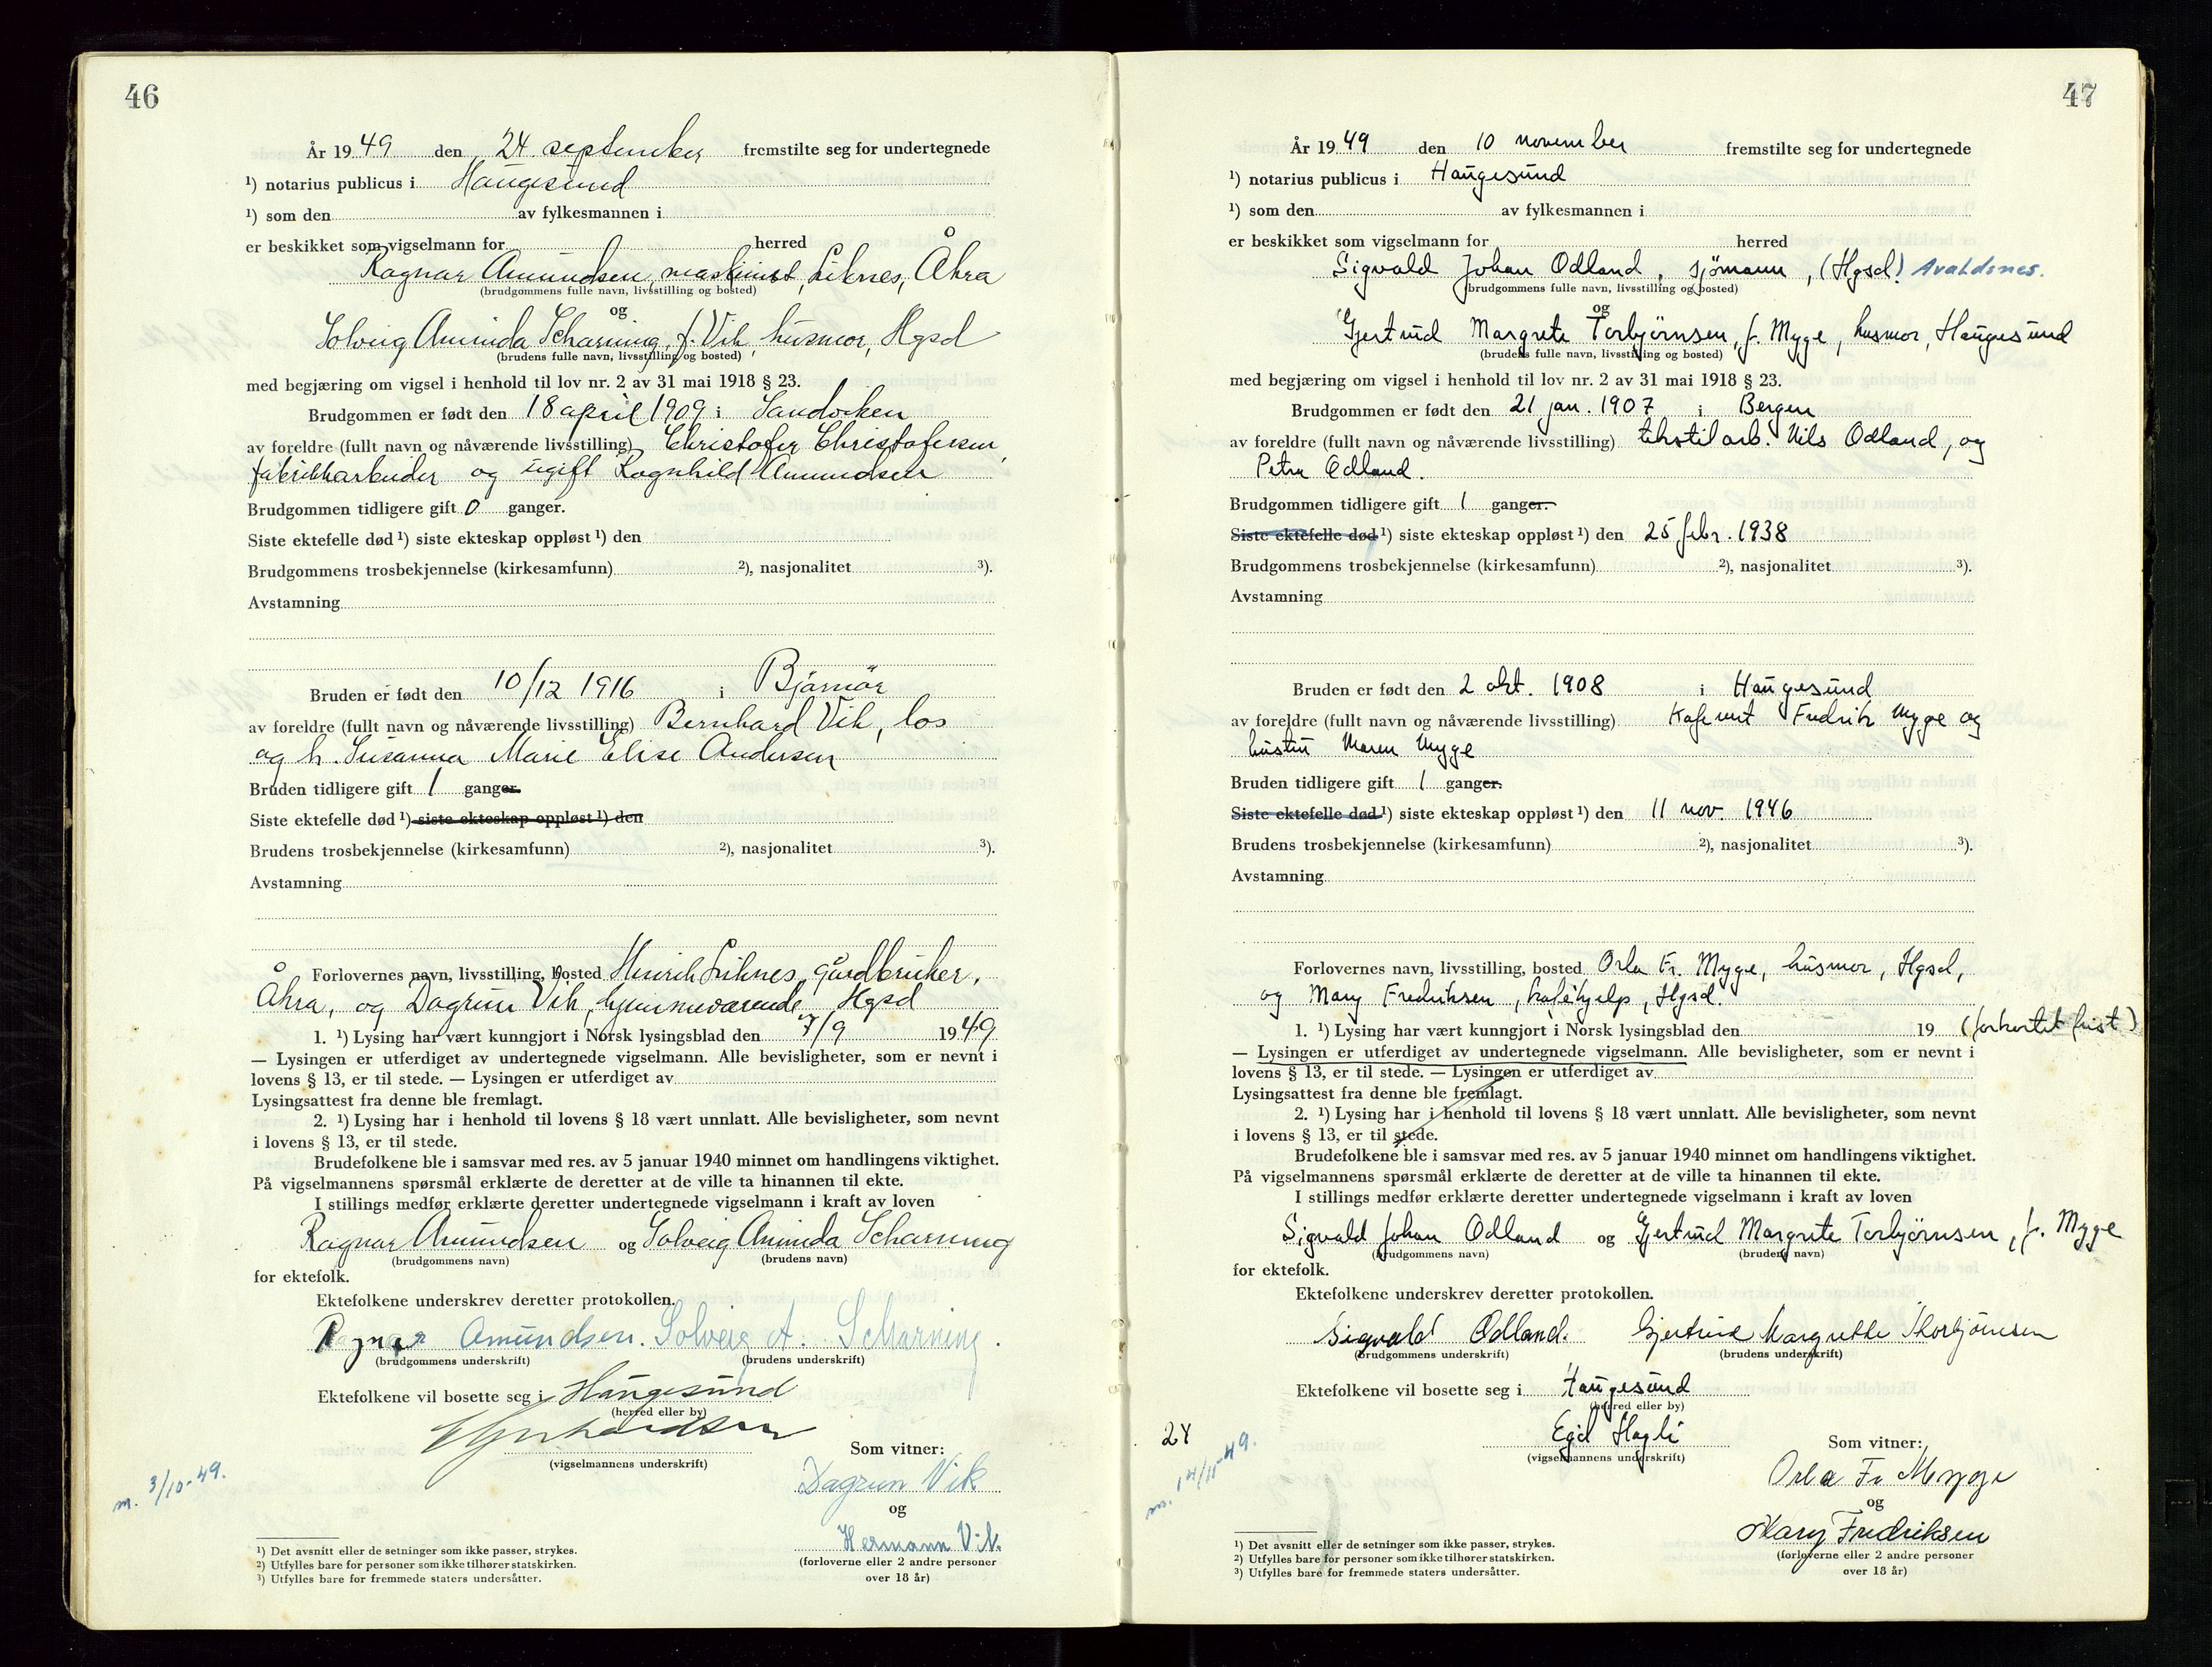 46
År 1949 den 24 september fremstilte seg for undertegnede
¹) notarius publicus i Haugesund
¹) som den av fylkesmannen i
er beskikket som vigselmann for herred
Ragnar Amundsen, maskinist, Liknes, Åkra
(brudgommens fulle navn, livsstilling og bosted)
og
Solveig Aminda Scharning, f. Vik, husmor, Hgsd
(brudens fulle navn, livsstilling og bosted)
med begjæring om vigsel i henhold til lov nr. 2 av 31 mai 1918 § 23.
Brudgommen er født den 18 april 1909 i Sandviken
av foreldre (fullt navn og nåværende livsstilling) Christofer Christofersen,
fabrikkarbeider og ugift Ragnhild Amundsen
Brudgommen tidligere gift 0 ganger.
Siste ektefelle død ¹) siste ekteskap oppløst ¹) den
Brudgommens trosbekjennelse (kirkesamfunn) ²), nasjonalitet ³).
Avstamning
Bruden er født den 10/12 1916 i Bjarnør
av foreldre (fullt navn og nåværende livsstilling) Bernhard Vik, los
og h. Susanna Marie Elise Andersen
Bruden tidligere gift 1 ganger.
Siste ektefelle død ¹) siste ekteskap oppløst ¹) den
Brudens trosbekjennelse (kirkesamfunn) ²), nasjonalitet ³).
Avstamning
Forlovernes navn, livsstilling, bosted Hinrik Liknes, gårdbruker,
Åkra, og Dagrun Vik, hjemmeværende Hgsd
1. ¹) Lysing har vært kunngjort i Norsk lysingsblad den 7/9 1949
— Lysingen er utferdiget av undertegnede vigselmann. Alle bevisligheter, som er nevnt i
lovens § 13, er til stede. — Lysingen er utferdiget av
Lysingsattest fra denne ble fremlagt.
2. ¹) Lysing har i henhold til lovens § 18 vært unnlatt. Alle bevisligheter, som nevnt
i lovens § 13, er til stede.
Brudefolkene ble i samsvar med res. av 5 januar 1940 minnet om handlingens viktighet.
På vigselmannens spørsmål erklærte de deretter at de ville ta hinannen til ekte.
I stillings medfør erklærte deretter undertegnede vigselmann i kraft av loven
Ragnar Amundsen og Solveig Aminda Scharning
(brudgommens navn) (brudens navn)
for ektefolk.
Ektefolkene underskrev deretter protokollen.
Ragnar Amundsen. Solveig A. Scharning.
(brudgommens underskrift) (brudens underskrift)
Ektefolkene vil bosette seg i Haugesund
(herred eller by)
(vigselmannens underskrift)
Som vitner:
Dagrun Vik
og
Hermann Vik.
(forloverne eller 2 andre personer
over 18 år)
m. 3/10-49.
¹) Det avsnitt eller de setninger som ikke passer, strykes.
²) Utfylles bare for personer som ikke tilhører statskirken.
³) Utfylles bare for fremmede staters undersåtter.
47
År 1949 den 10 november fremstilte seg for undertegnede
¹) notarius publicus i Haugesund
¹) som den av fylkesmannen i
er beskikket som vigselmann for herred
Sigvald Johan Odland, sjömann, (Hgsd) Avaldsnes.
(brudgommens fulle navn, livsstilling og bosted)
og
Gjertrud Margrete Torbjørnsen, f. Myge, husmor, Haugesund
(brudens fulle navn, livsstilling og bosted)
med begjæring om vigsel i henhold til lov nr. 2 av 31 mai 1918 § 23.
Brudgommen er født den 21 jan. 1907 i Bergen
av foreldre (fullt navn og nåværende livsstilling) tekstilarb. Nils Odland, og
Petra Odland.
Brudgommen tidligere gift 1 ganger.
Siste ektefelle død ¹) siste ekteskap oppløst ¹) den 25 febr. 1938
Brudgommens trosbekjennelse (kirkesamfunn) ²), nasjonalitet ³).
Avstamning
Bruden er født den 2 okt. 1908 i Haugesund
av foreldre (fullt navn og nåværende livsstilling) Kafevert Fredrik Myge og
hustru Maren Myge
Bruden tidligere gift 1 ganger.
Siste ektefelle død ¹) siste ekteskap oppløst ¹) den 11 nov. 1946
Brudens trosbekjennelse (kirkesamfunn) ²), nasjonalitet ³).
Avstamning
Forlovernes navn, livsstilling, bosted Orla Fr. Myge, husmor, Hgsd,
og Mary Fredriksen, kaféhjelp, Hgsd.
1. ¹) Lysing har vært kunngjort i Norsk lysingsblad den 19 (forkortet frist)
— Lysingen er utferdiget av undertegnede vigselmann. Alle bevisligheter, som er nevnt i
lovens § 13, er til stede. — Lysingen er utferdiget av
Lysingsattest fra denne ble fremlagt.
2. ¹) Lysing har i henhold til lovens § 18 vært unnlatt. Alle bevisligheter, som nevnt
i lovens § 13, er til stede.
Brudefolkene ble i samsvar med res. av 5 januar 1940 minnet om handlingens viktighet.
På vigselmannens spørsmål erklærte de deretter at de ville ta hinannen til ekte.
I stillings medfør erklærte deretter undertegnede vigselmann i kraft av loven
Sigvald Johan Odland og Gjertrud Margrete Torbjørnsen, f. Myge
(brudgommens navn) (brudens navn)
for ektefolk.
Ektefolkene underskrev deretter protokollen.
Sigvald Odland. Gjertrud Margrethe Thorbjørnsen
(brudgommens underskrift) (brudens underskrift)
Ektefolkene vil bosette seg i Haugesund
(herred eller by)
24
Egil Hagli
(vigselmannens underskrift)
Som vitner:
Orla Fr Myge
og
Mary Fredriksen
(forloverne eller 2 andre personer
over 18 år)
m. 14/11-49.
¹) Det avsnitt eller de setninger som ikke passer, strykes.
²) Utfylles bare for personer som ikke tilhører statskirken.
³) Utfylles bare for fremmede staters undersåtter.